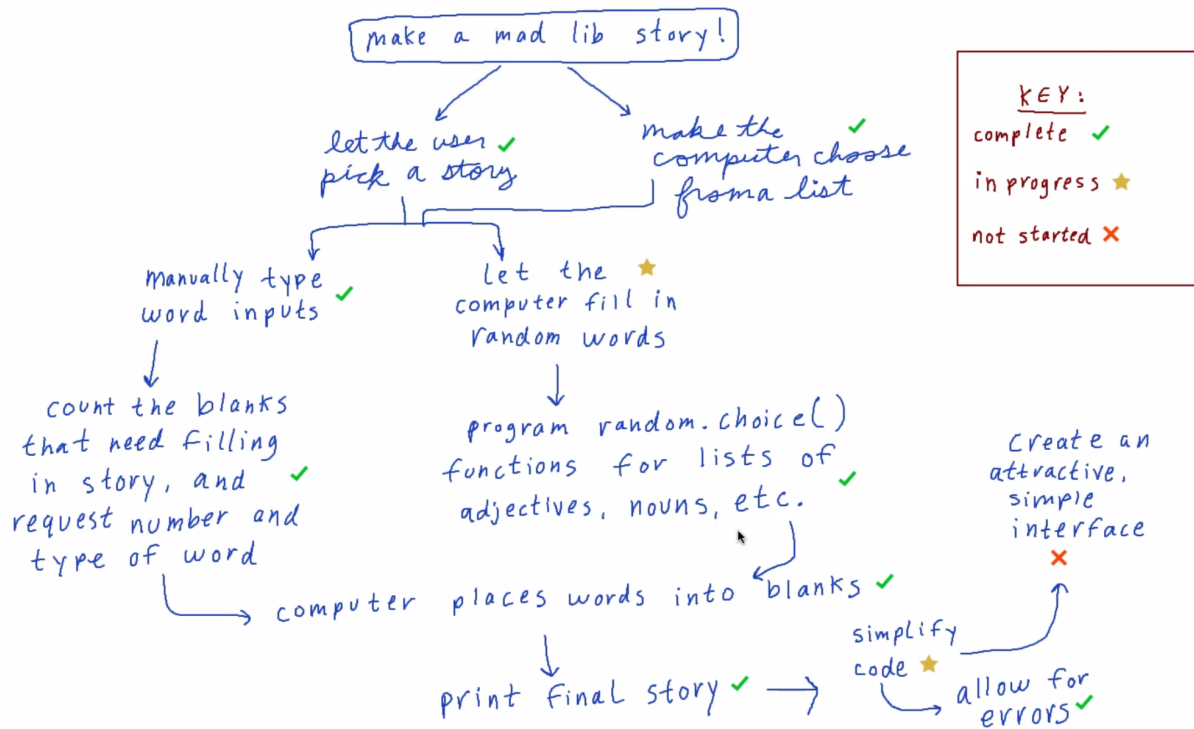 make a mad lib story!
KEY:
complete
in progress
not started
let the user
pick a story
make the
computer choose
from a list
manually type
word inputs
let the
computer fill in
random words
count the blanks
that need filling
in story, and
request number and
type of word
program random.choice()
functions for lists of
adjectives, nouns, etc.
create an
attractive,
simple
interface
computer places words into blanks
simplify
code
print final story
allow for
errors